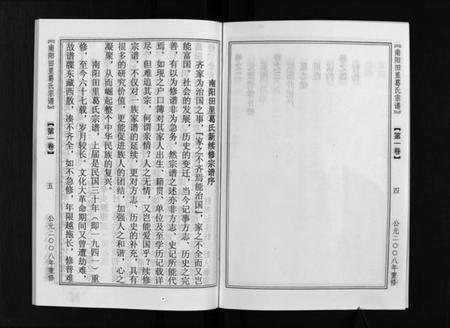 《南阳田里葛氏宗谱》
【第一卷】
四
公元二〇〇八年重修
南阳田里葛氏新续修宗谱序
齐家为治国之事，『家之不齐焉能治国』，家之不全而又岂
能富国。社会的发展，历史的变迁，当今记事方志、历史之完
善，有以为修谱非为急务，然宗谱之述亦非方志、史记所能代
焉，如现之户口簿对其家人出生、籍贯、单位及至学历记载详
尽，但难追其宗，何谓亲情？人之无情，又岂能爱国乎？续修
宗谱，不仅对一族家谱的延续，更对方志、历史的补充，具有
很多的研究价值，更能促进族人的团结，加强人之和谐，心之
凝聚，从而崛起整个中华民族的复兴。
南阳田里葛氏宗谱，上届是民国三十年（即一九四一）重
修，至今六十七载，岁月较长，文化大革命期间又曾遭劫难，
故谱牒东藏西散，凑不齐全，如不急修，年限越拖长，修普难
《南阳田里葛氏宗谱》
【第一卷】
五
公元二〇〇八年重修